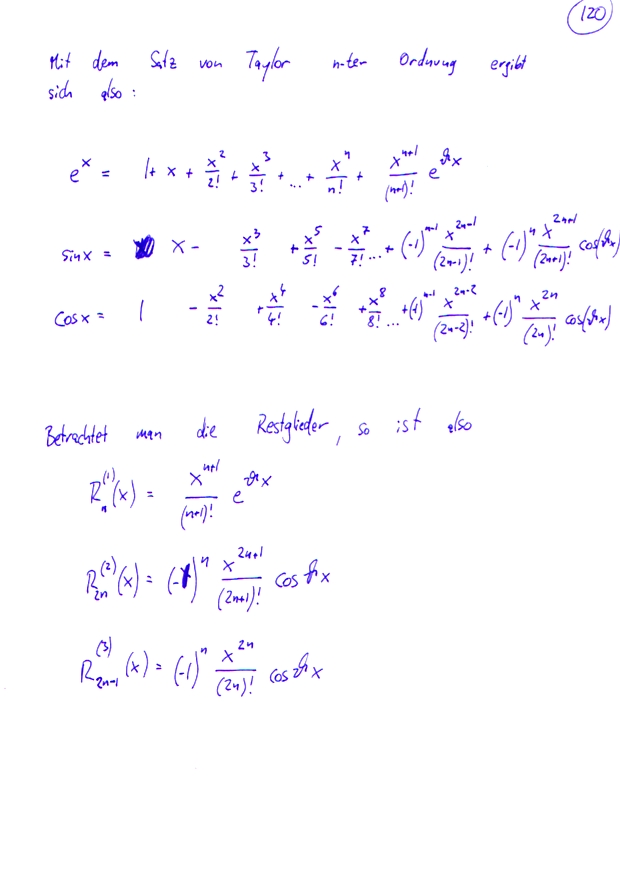 120
Mit dem Satz von Taylor n-ter Ordnung ergibt
sich also:
e^x = 1 + x + x^2/2! + x^3/3! + ... + x^n/n! + x^{n+1}/(n+1)! e^{ϑx}
sin x = x - x^3/3! + x^5/5! - x^7/7! ... + (-1)^{n-1} x^{2n-1}/(2n-1)! + (-1)^n x^{2n+1}/(2n+1)! cos(ϑx)
cos x = 1 - x^2/2! + x^4/4! - x^6/6! + x^8/8! ... + (-1)^{n-1} x^{2n-2}/(2n-2)! + (-1)^n x^{2n}/(2n)! cos(ϑx)
Betrachtet man die Restglieder, so ist also
R_n^{(1)}(x) = x^{n+1}/(n+1)! e^{ϑx}
R_{2n}^{(2)}(x) = (-1)^n x^{2n+1}/(2n+1)! cos ϑx
R_{2n-1}^{(3)}(x) = (-1)^n x^{2n}/(2n)! cos ϑx